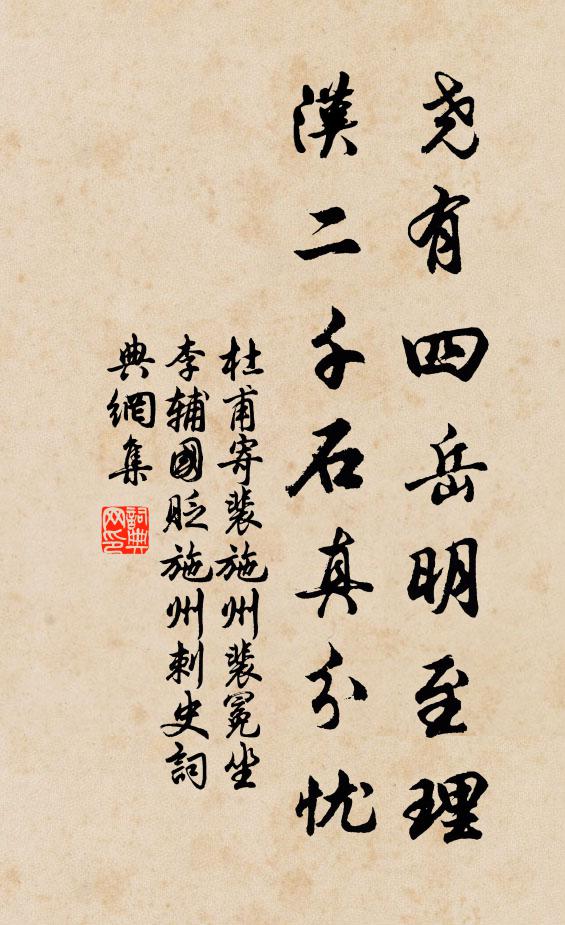 尧有四岳明至理
漢二千石真分忧
杜甫寄裴施州裴冕坐
李辅國貶施州刺史詞
典網集
詞典
网印